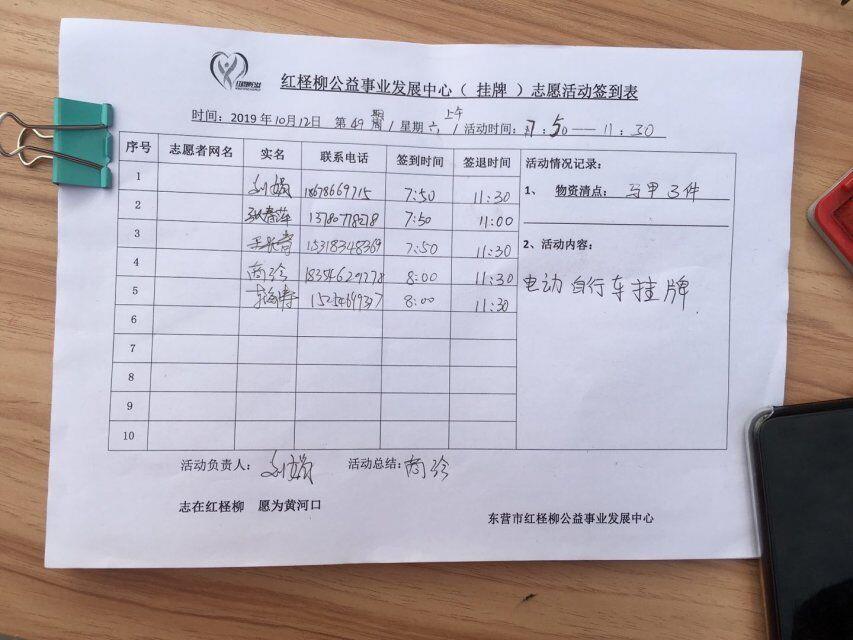 红柽柳公益事业发展中心（ 挂牌 ）志愿活动签到表
时间：2019年10月12日 第49期周/星期六 上午/活动时间：7：50—11：30
序号 志愿者网名 实名 联系电话 签到时间 签退时间 活动情况记录：
1 7:50 11:30 1、 物资清点： 马甲3件
2 张春萍 13780778278 7:50 11:00
3 15318348369 7:50 11:30 2、活动内容：
4 商珍 8:00 11:30 电动自行车挂牌
5 8:00 11:30
6
7
8
9
10
活动负责人： 活动总结：商珍
志在红柽柳 愿为黄河口
东营市红柽柳公益事业发展中心